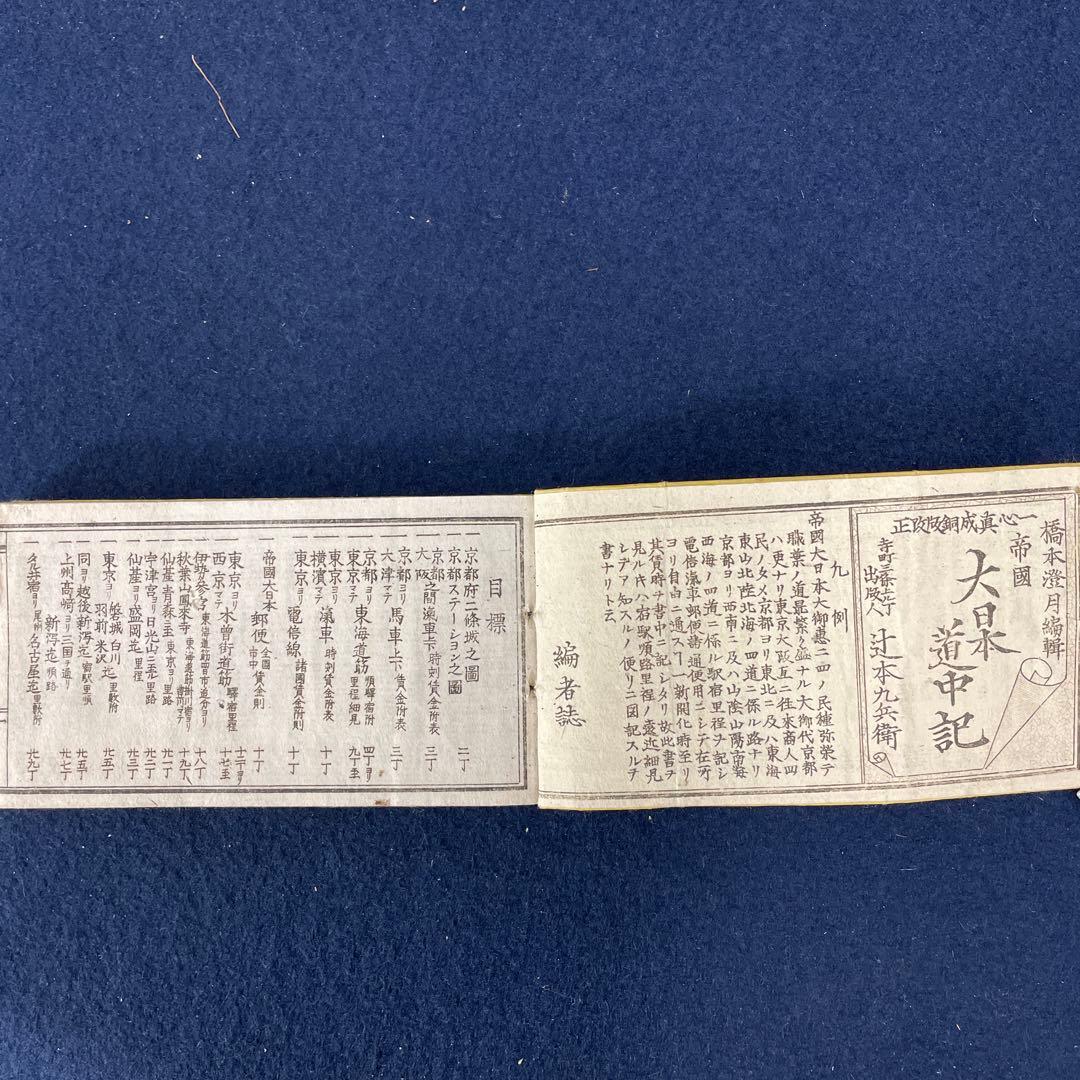 橋本澄月編輯
一心真成銅版改正
帝國
大日本
道中記
寺町三条上ル丁
出版人
辻本九兵衛
凡例
帝國大日本大御恵ニ四ノ民種弥榮テ
職葉ノ道昷繁ク盛ナル大御代京都
ハ更ナリ東京大阪互ニ往來商人四
民ノタメ京都ヨリ東北ニ及ハ東海
東山北陸北海ノ四道ニ係ル路ナリ
京都ヨリ西南ニ及ハ山陰山陽南海
西海ノ四道ニ係ル駅宿里程ヲ記シ
電信滊車郵便普通便用ニシテ在所
ヨリ自由ニ通スヿ一新開化時至リ
其賃時ヲ書中ニ記シタリ故此書ヲ
見ルキハ宿駅順路里程ノ遠近細見
シテア知スルノ便リニ図記スルヲ
書ナリト云
編者誌
目標
一京都府二條城之圖 二丁
一京都ステーシヨン之圖
一京都大阪間滊車上下時刻賃金附表 三丁
一京都ヨリ大津マテ馬車上下賃金附表 三丁
一京都ヨリ東京マテ東海道筋順駅宿附里程細見 四丁ヨリ九丁至
一東京ヨリ横濱マテ滊車時刻賃金附表 十丁
一東京ヨリ電信線諸國賃金附則 十丁
一帝國大日本郵便全國市中賃金則 十丁
一東京ヨリ西京マテ木曽街道筋驛宿里程 十二丁ヨリ十七至
一伊勢参宮東海道筋四日市追分ヨリ 十八丁
一秋葉山鳳來寺東海道筋掛川宿ヨリ御油マテ 十九丁
一仙臺青森至東京ヨリ里路 廾一丁
一宇津宮ヨリ日光山ニ至里路 廾二丁
一仙臺ヨリ盛岡迄里程 廾三丁
一東京ヨリ磐城白川迄羽前米沢迄里数附 廾五丁
一同ヨリ越後新泻迄宿駅里順 廾五丁
一上州高崎ヨリ三国ヲ通リ新泻迄順路 廾七丁
一名井宿ヨリ尾州名古屋迄里数附 廾九丁